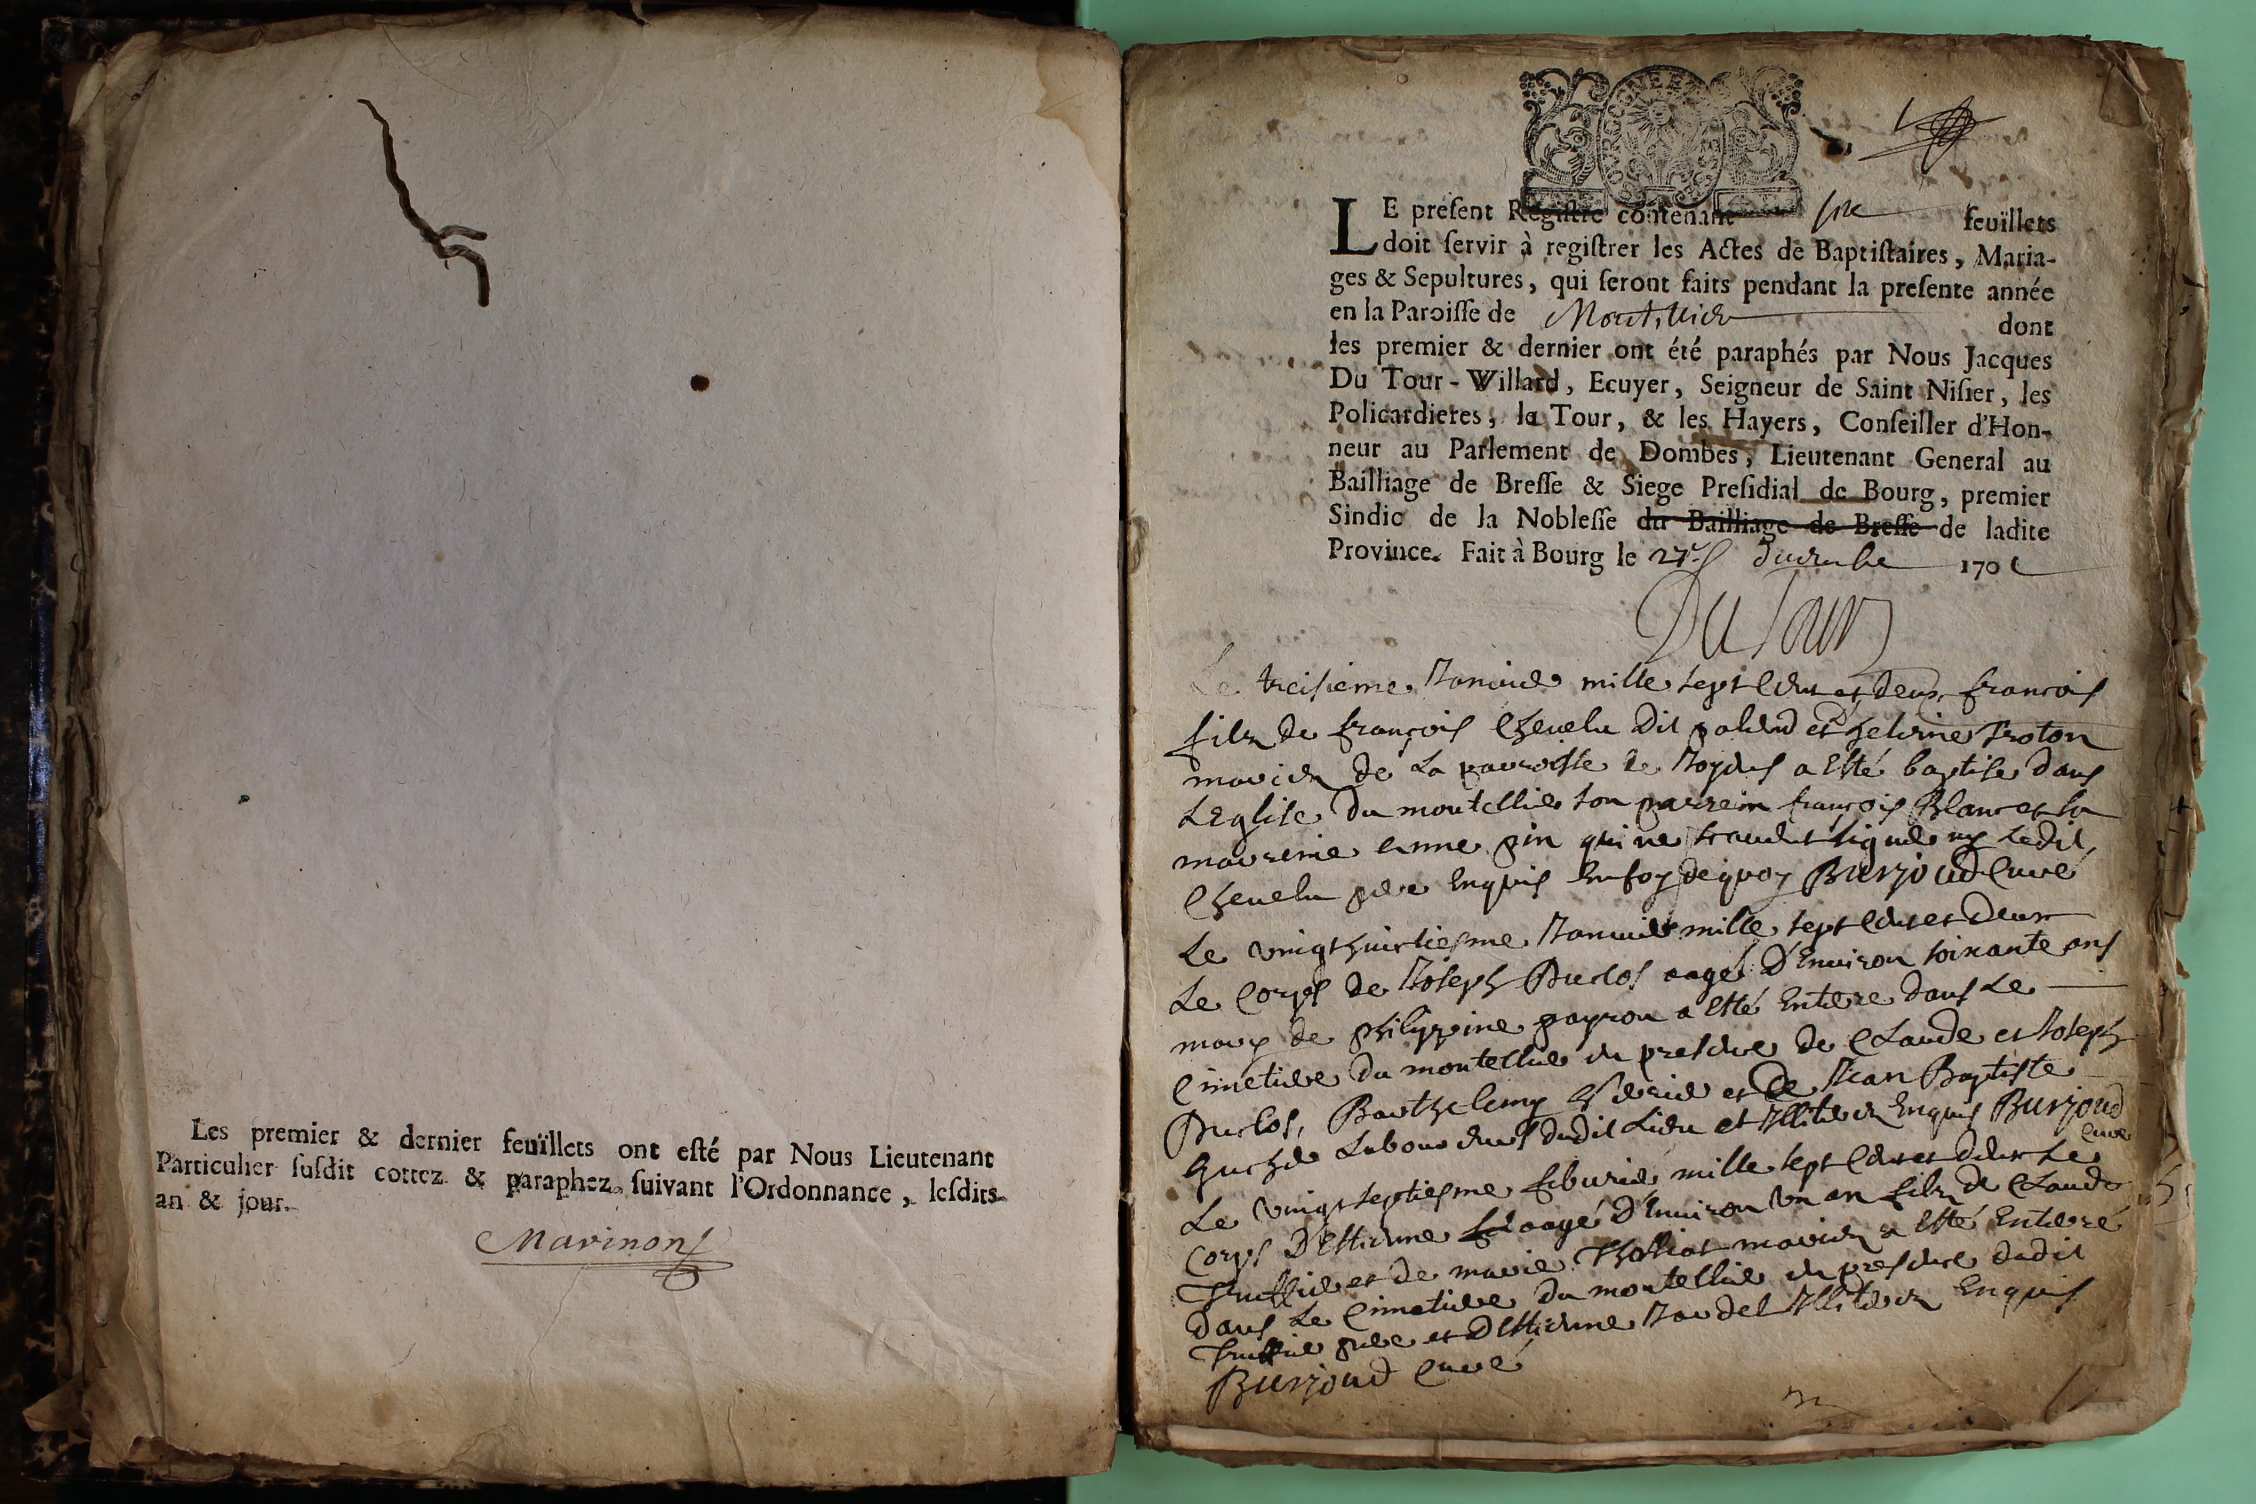 Les premier & dernier feuïllets ont esté par Nous Lieutenant
Particulier susdit cottez & paraphez suivant l'Ordonnance, lesdits
an & jour.
Marinon
BOURGOGNE
LE present Registre contenant six feuïllets
doit servir à registrer les Actes de Baptistaires, Maria-
ges & Sepultures, qui seront faits pendant la presente année
en la Paroisse de Montellier dont
les premier & dernier ont été paraphés par Nous Jacques
Du Tour-Willard, Ecuyer, Seigneur de Saint Nisier, les
Policardieres, la Tour, & les Hayers, Conseiller d'Hon-
neur au Parlement de Dombes, Lieutenant General au
Bailliage de Bresse & Siege Presidial de Bourg, premier
Sindic de la Noblesse du Bailliage de Bresse de ladite
Province. Fait à Bourg le 27e decembre 1701
DuTour
Le treisieme Januier mille sept cent et deux francois
filz de françois Cheuelu dit et Proton
mariez de La parroisse de Joyeus a esté baptise dans
LEglise du montellier son parrein françois Blanc et sa
marreine anne pin qui ne scauent signer ny Ledit
Cheuelu pere Enquis En foy de quoy Burjoud Curé
Le vingt huictiesme Januier mille sept cent et deux
Le Corps de Joseph Duclos aagé d'Enuiron soixante ans
mary de philippine payron a esté Enterre dans Le
Cimetiere du montellier en presence de Claude et Joseph
Duclos, Barthelemy et de Jean Baptiste
Laboureurs dudit Lieu et Illiterez Enquis Burjoud
Curé
Le vingt septiesme feburier mille sept cent et deux Le
Corps D'Estienne aagé d'Enuiron un an filz de Claude
Truffier et de marie Thollot mariez a esté Enterré
dans Le Cimetiere du montellier en presence dudit
Truffier pere et D'Estienne Illiterez Enquis
Burjoud Curé